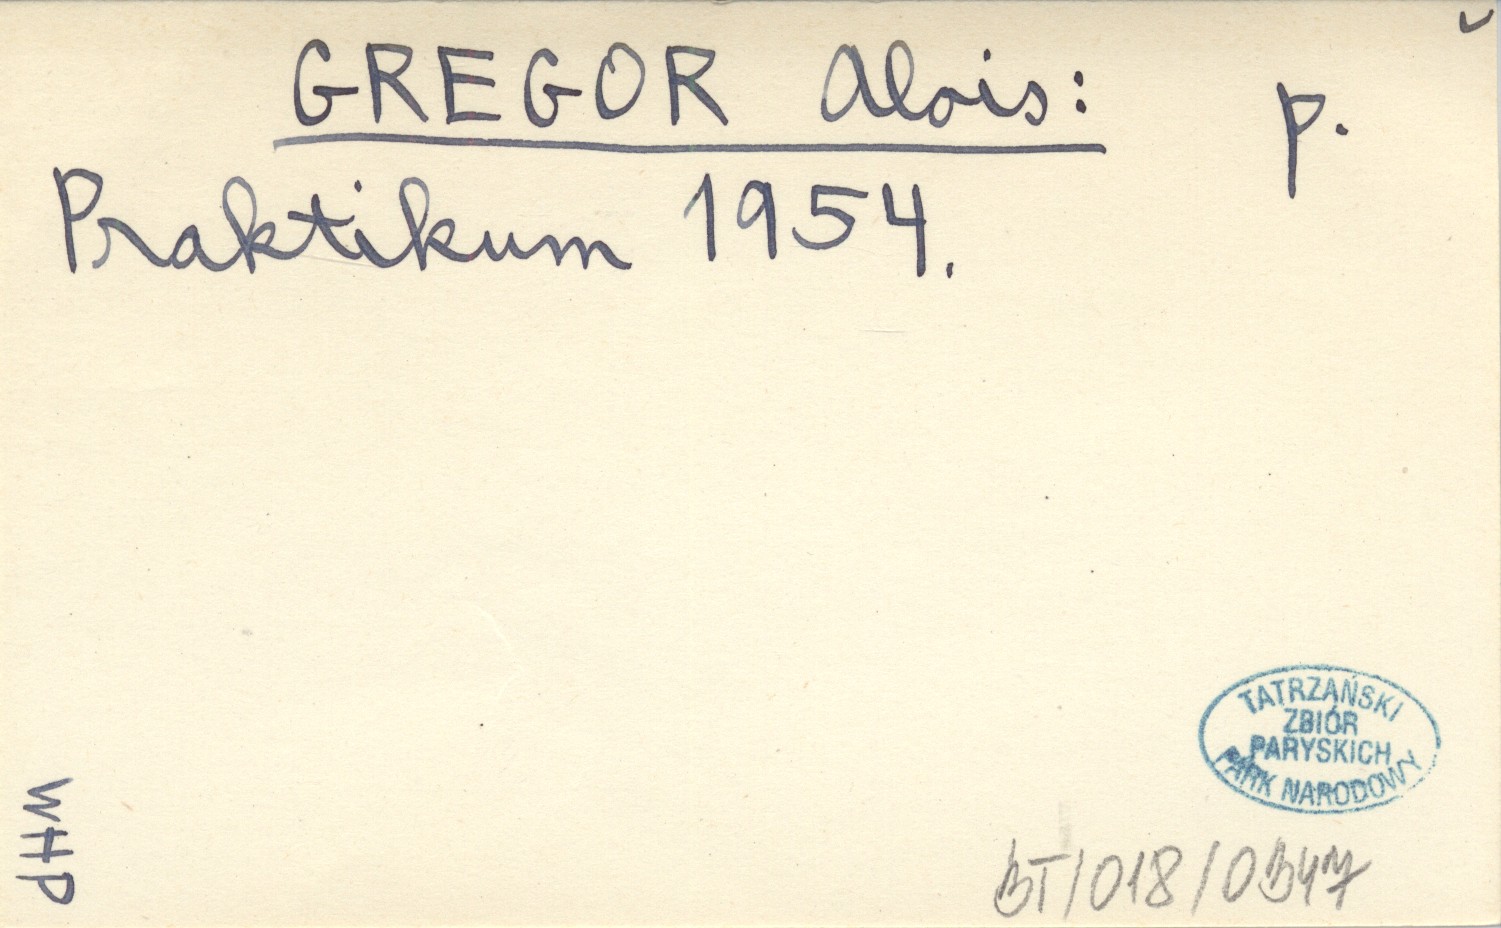 GREGOR Alois: p.
Praktikum 1954.
TATRZAŃSKI
ZBIÓR
PARYSKICH
PARK NARODOWY
WHP
BT/018/0347